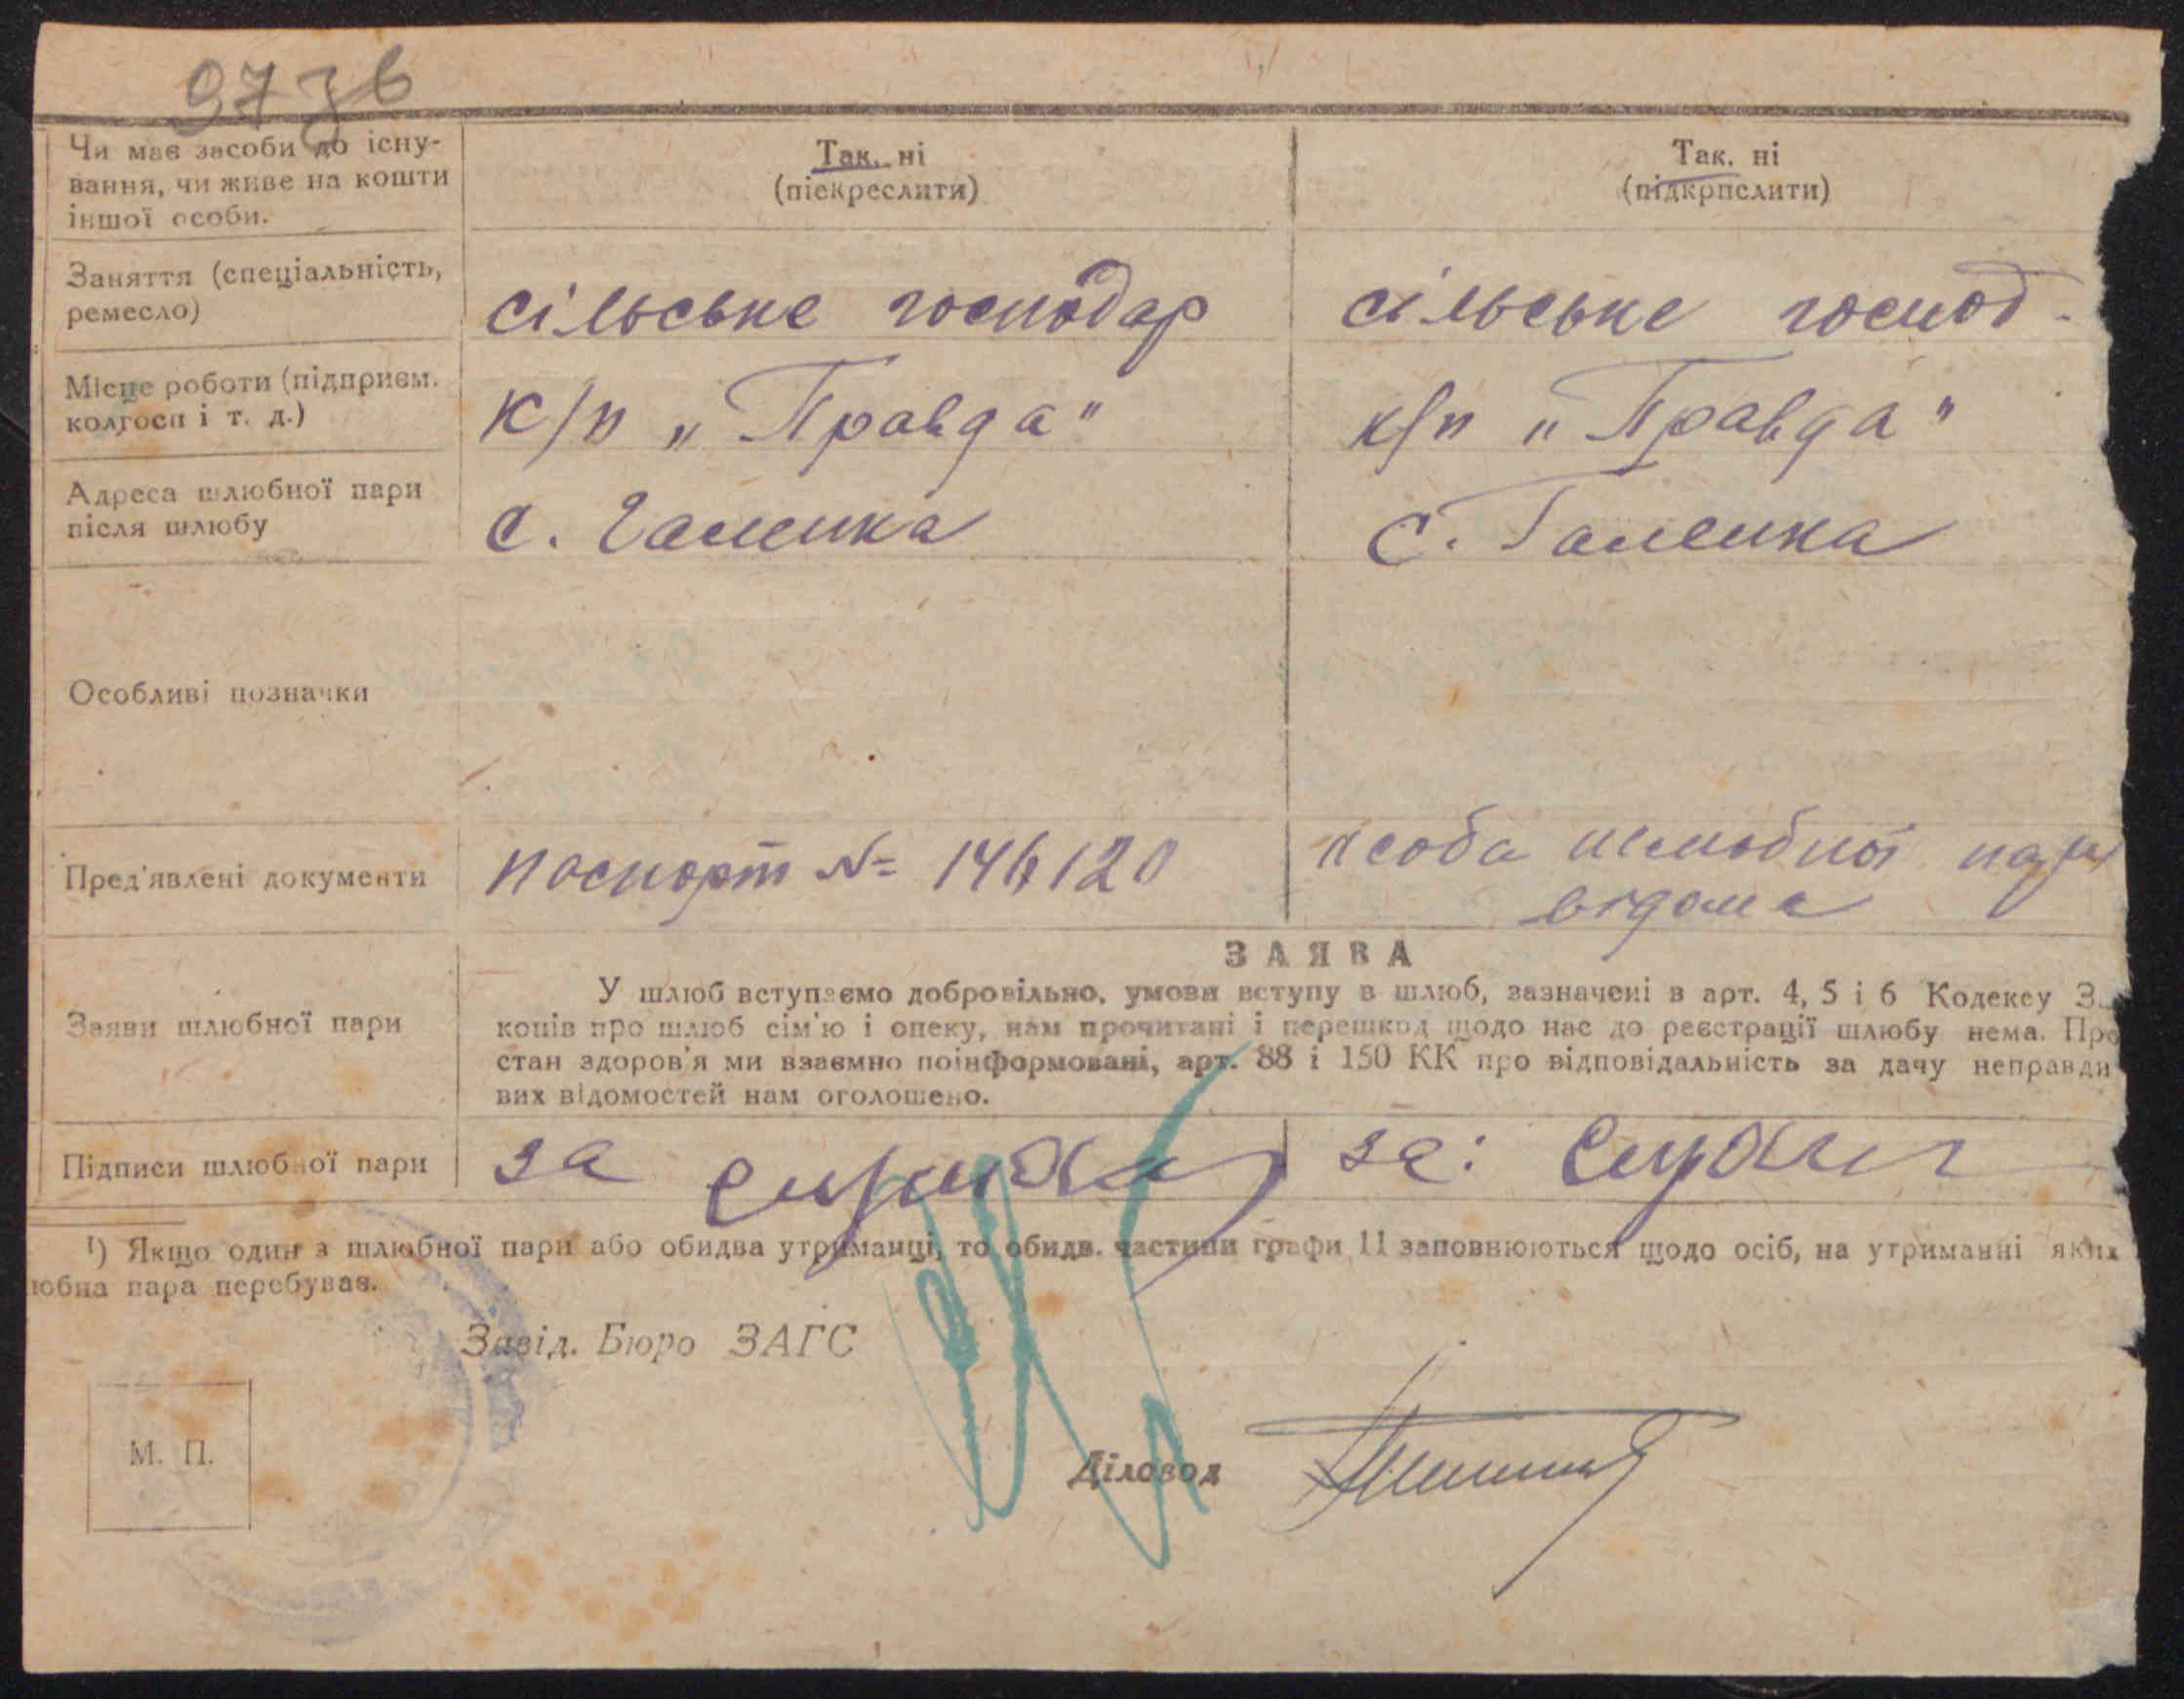 97 зв
Чи має засоби до існу-
вання, чи живе на кошти
іншої особи.
Так, ні
(піекреслити)
Так, ні
(підкрпслити)
Заняття (спеціальність,
ремесло)
сільське господар
сільське господ.
Місце роботи (підприєм.
колгосп і т. д.)
К/п „Правда"
к/п „Правда"
Адреса шлюбної пари
після шлюбу
с. Галенка
с. Галенка
Особливі позначки
Пред'явлені документи
паспорт № 146120
особа шлюбної пари
відома
Заяви шлюбної пари
ЗАЯВА
У шлюб вступаємо добровільно, умови вступу в шлюб, зазначені в арт. 4, 5 і 6 Кодексу З
конів про шлюб сім'ю і опеку, нам прочитані і перешкод щодо нас до реєстрації шлюбу нема. Про
стан здоров'я ми взаємно поінформовані, арт. 88 і 150 КК про відповідальність за дачу неправди
вих відомостей нам оголошено.
Підписи шлюбної пари
за
за:
¹) Якщо один з шлюбної пари або обидва утриманці, то обидв. частини графи 11 заповнюються щодо осіб, на утриманні яких
юбна пара перебуває.
Завід. Бюро ЗАГС
М. П.
Діловод